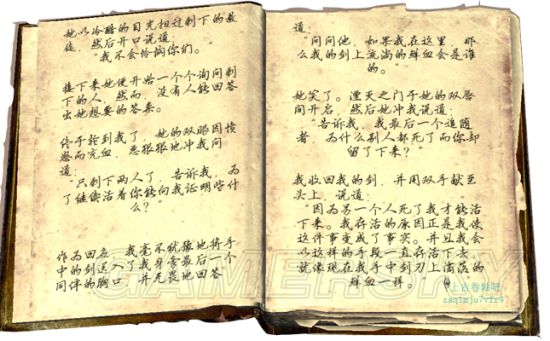 她以冷酷的目光扫过剩下的教
徒，然后开口说道：
“我不会怜悯你们。”
接下来她便开始一个个询问剩
下的人，然而，没有人能回答
出她想要的答案。
终于轮到我了，她的双眼因愤
怒而充血，恶狠狠地冲我问
道：
“只剩下两人了，告诉我，为
了继续活着你能向我证明些什
么？”
作为回应，我毫不犹豫地将手
中的剑送入了我身旁最后一个
同伴的胸口，并无畏地回答
道：
“问问他，如果我在这里，那
么我的剑上流淌的鲜血会是谁
的。”
她笑了。湮灭之门于她的双唇
间开启，然后她冲我说道：
“告诉我，我最后一个追随
者，为什么别人都死了而你却
留了下来？”
我收回我的剑，并用双手献至
头上，说道：
“因为另一个人死了我才能活
下来。我存活的原因正是我使
这件事变成了事实。并且我会
以这样的手段一直存活下去，
就像现在我手中剑刃上滴落的
鲜血一样。”
GAMERSKY
上古卷轴吧
zaq1mju7vfr4